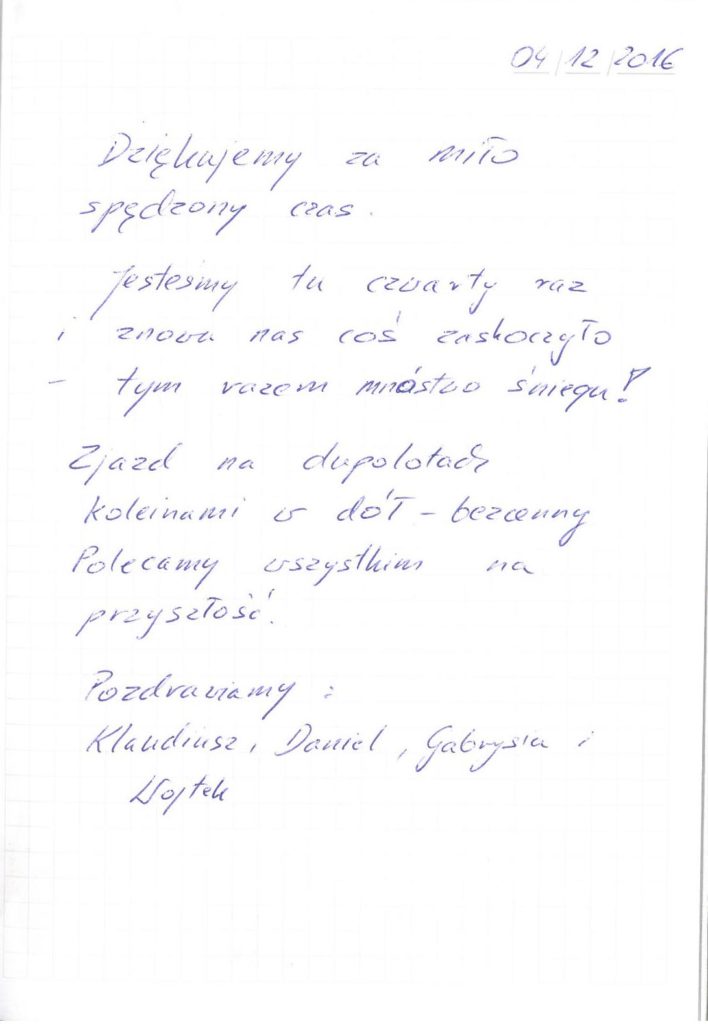 04/12/2016
Dziękujemy za miło
spędzony czas.
Jesteśmy tu czwarty raz
i znowu nas coś zaskoczyło
- tym razem mnóstwo śniegu!
Zjazd na dupolotach
koleinami w dół - bezcenny
Polecamy wszystkim na
przyszłość.
Pozdrawiamy :
Klaudiusz, Daniel, Gabrysia i
Wojtek